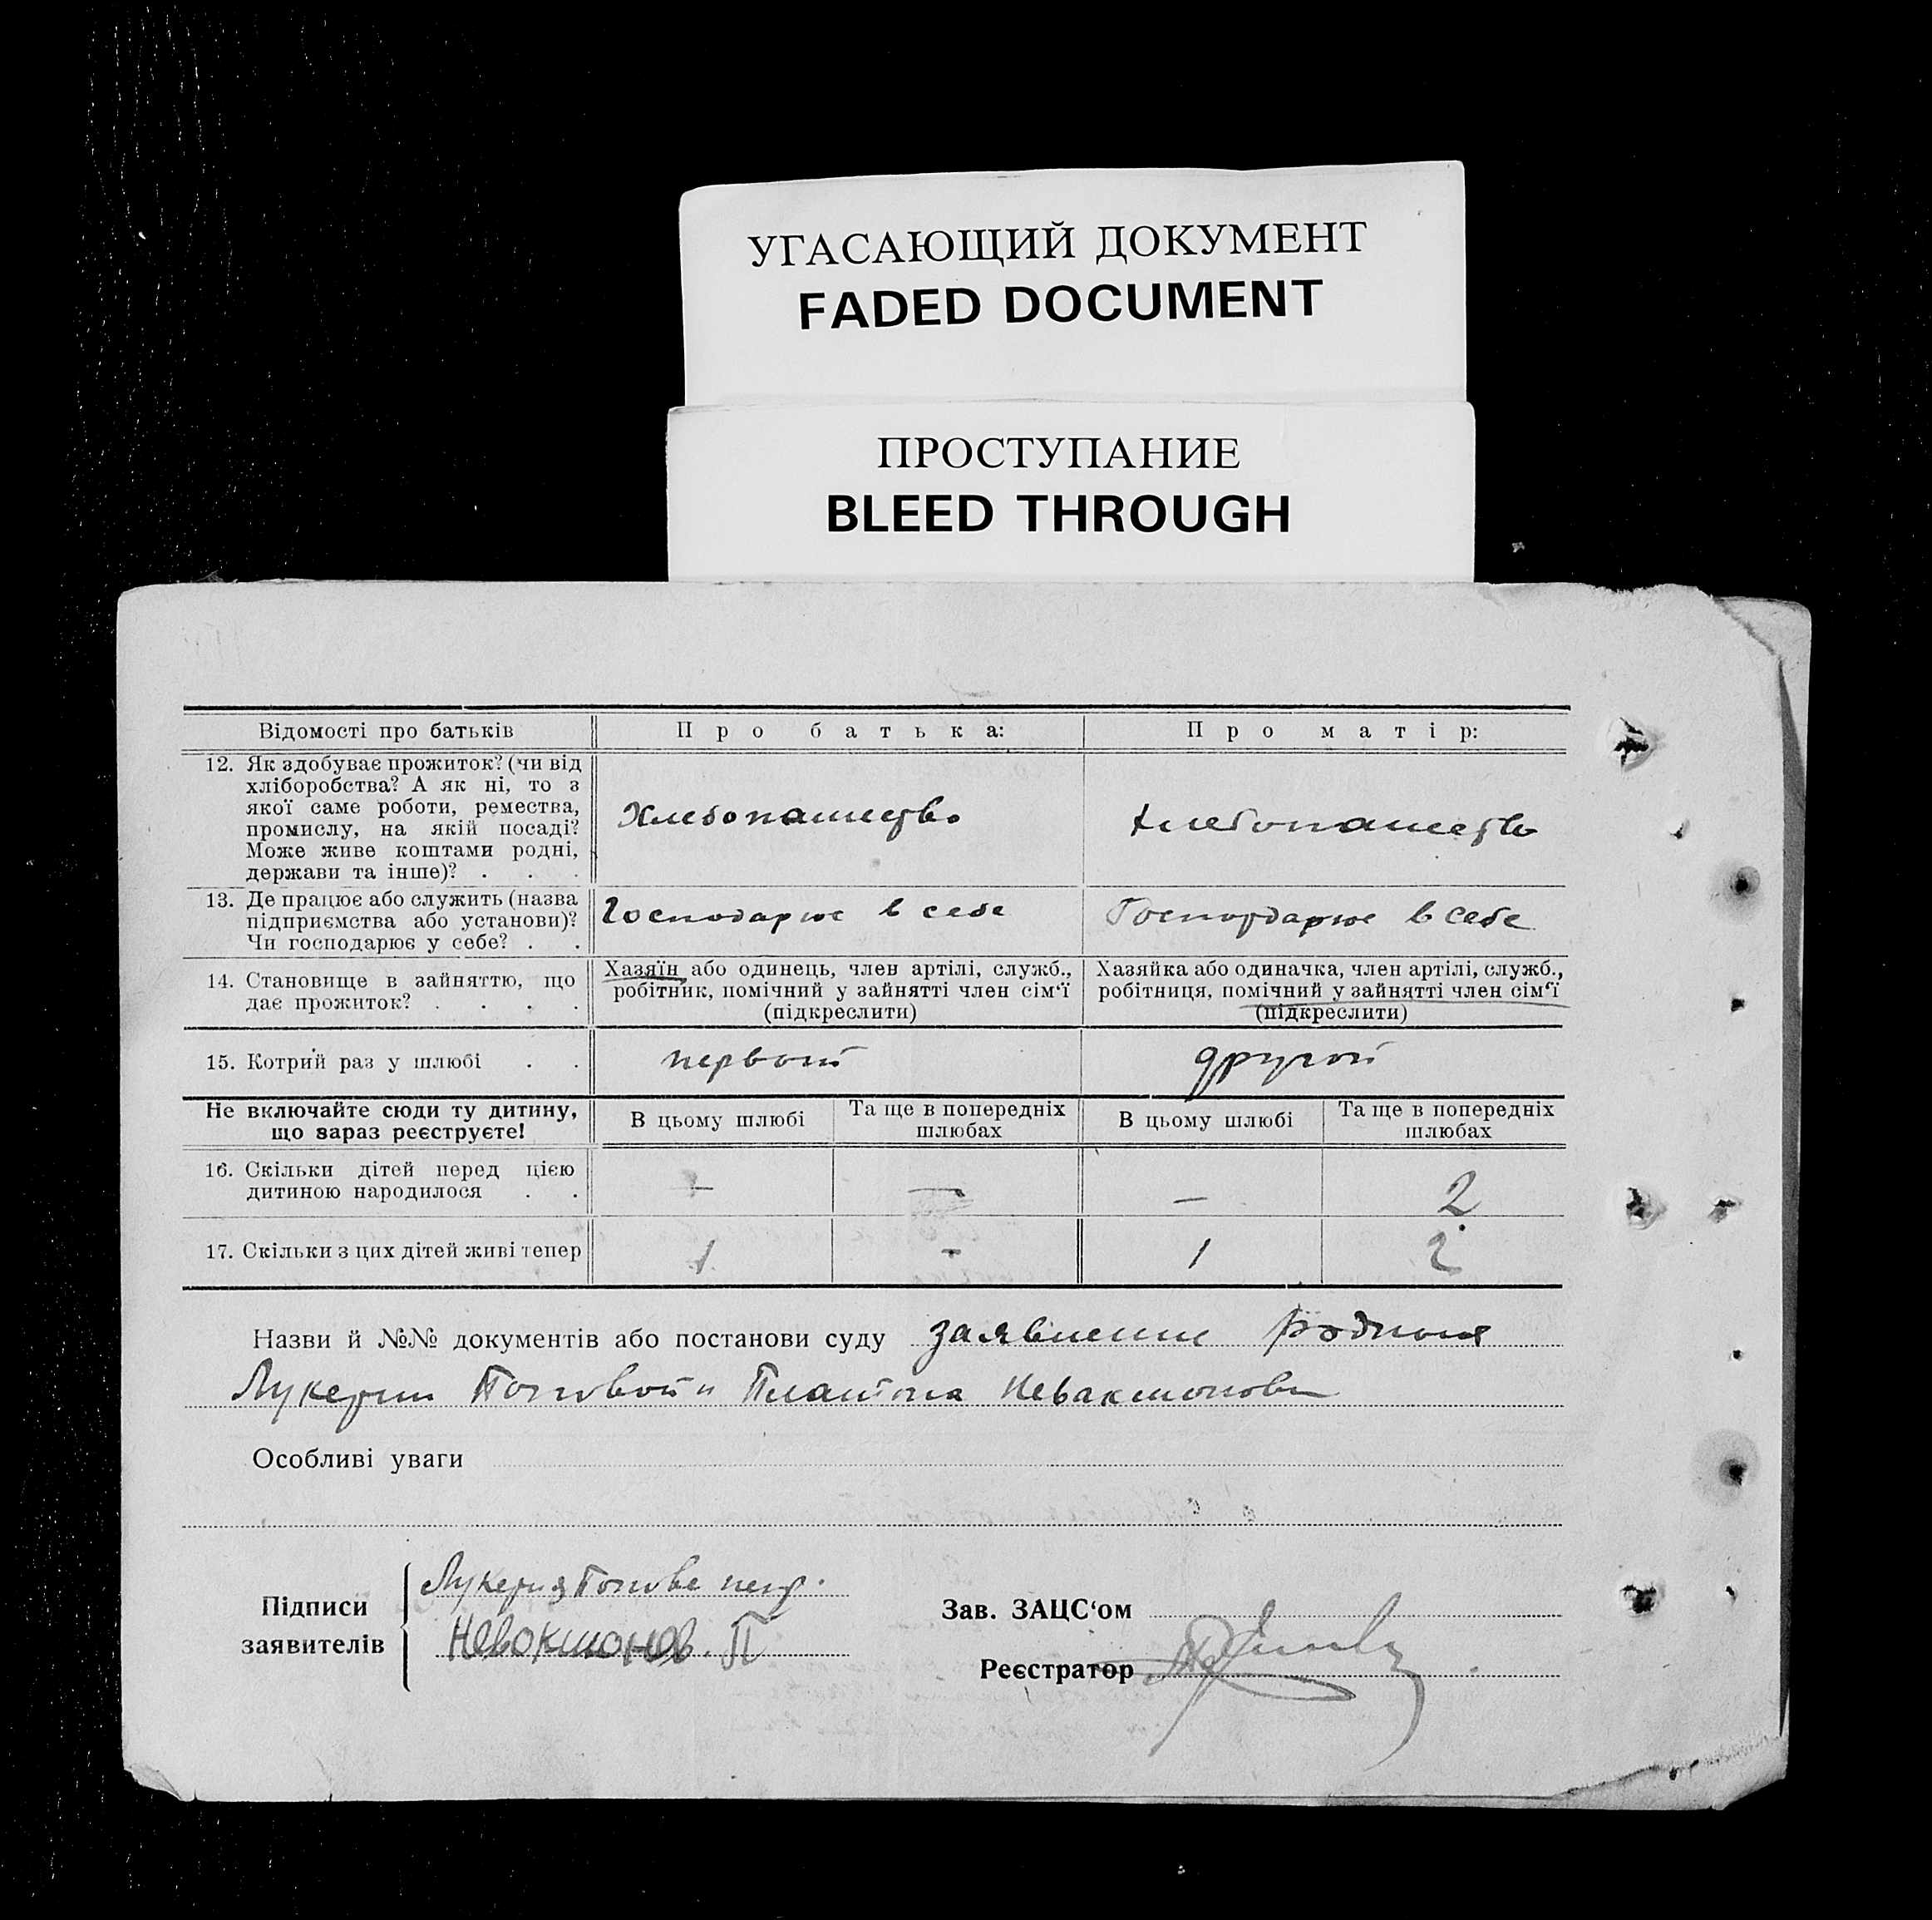 УГАСАЮЩИЙ ДОКУМЕНТ
FADED DOCUMENT
ПРОСТУПАНИЕ
BLEED THROUGH
Відомості про батьків
Про батька:
Про матір:
12. Як здобуває прожиток? (чи від
хліборобства? А як ні, то з
якої саме роботи, ремества,
промислу, на якій посаді?
Може живе коштами родні,
держави та інше)? . . .
Хлебопашество
Хлебопашество
13. Де працює або служить (назва
підприємства або установи)?
Чи господарює у себе? . .
Господарює в себе
Господарює в себе
14. Становище в зайняттю, що
дає прожиток? . . . .
Хазяїн або одинець, член артілі, служб.,
робітник, помічний у зайнятті член сім‘ї
(підкреслити)
Хазяйка або одиначка, член артілі, служб.,
робітниця, помічний у зайнятті член сім‘ї
(підкреслити)
15. Котрий раз у шлюбі . .
первый
другой
Не включайте сюди ту дитину,
що зараз реєструєте!
В цьому шлюбі
Та ще в попередніх
шлюбах
В цьому шлюбі
Та ще в попередніх
шлюбах
16. Скільки дітей перед цією
дитиною народилося . .
— — — 2
17. Скільки з цих дітей живі тепер
1 - 1 2
Назви й №№ документів або постанови суду заявление
Лукерии Поповой и Платона Невакшонова
Особливі уваги
Підписи
заявителів
Лукерия Попова
Невокшонов. П
Зав. ЗАЦС‘ом
Реєстратор